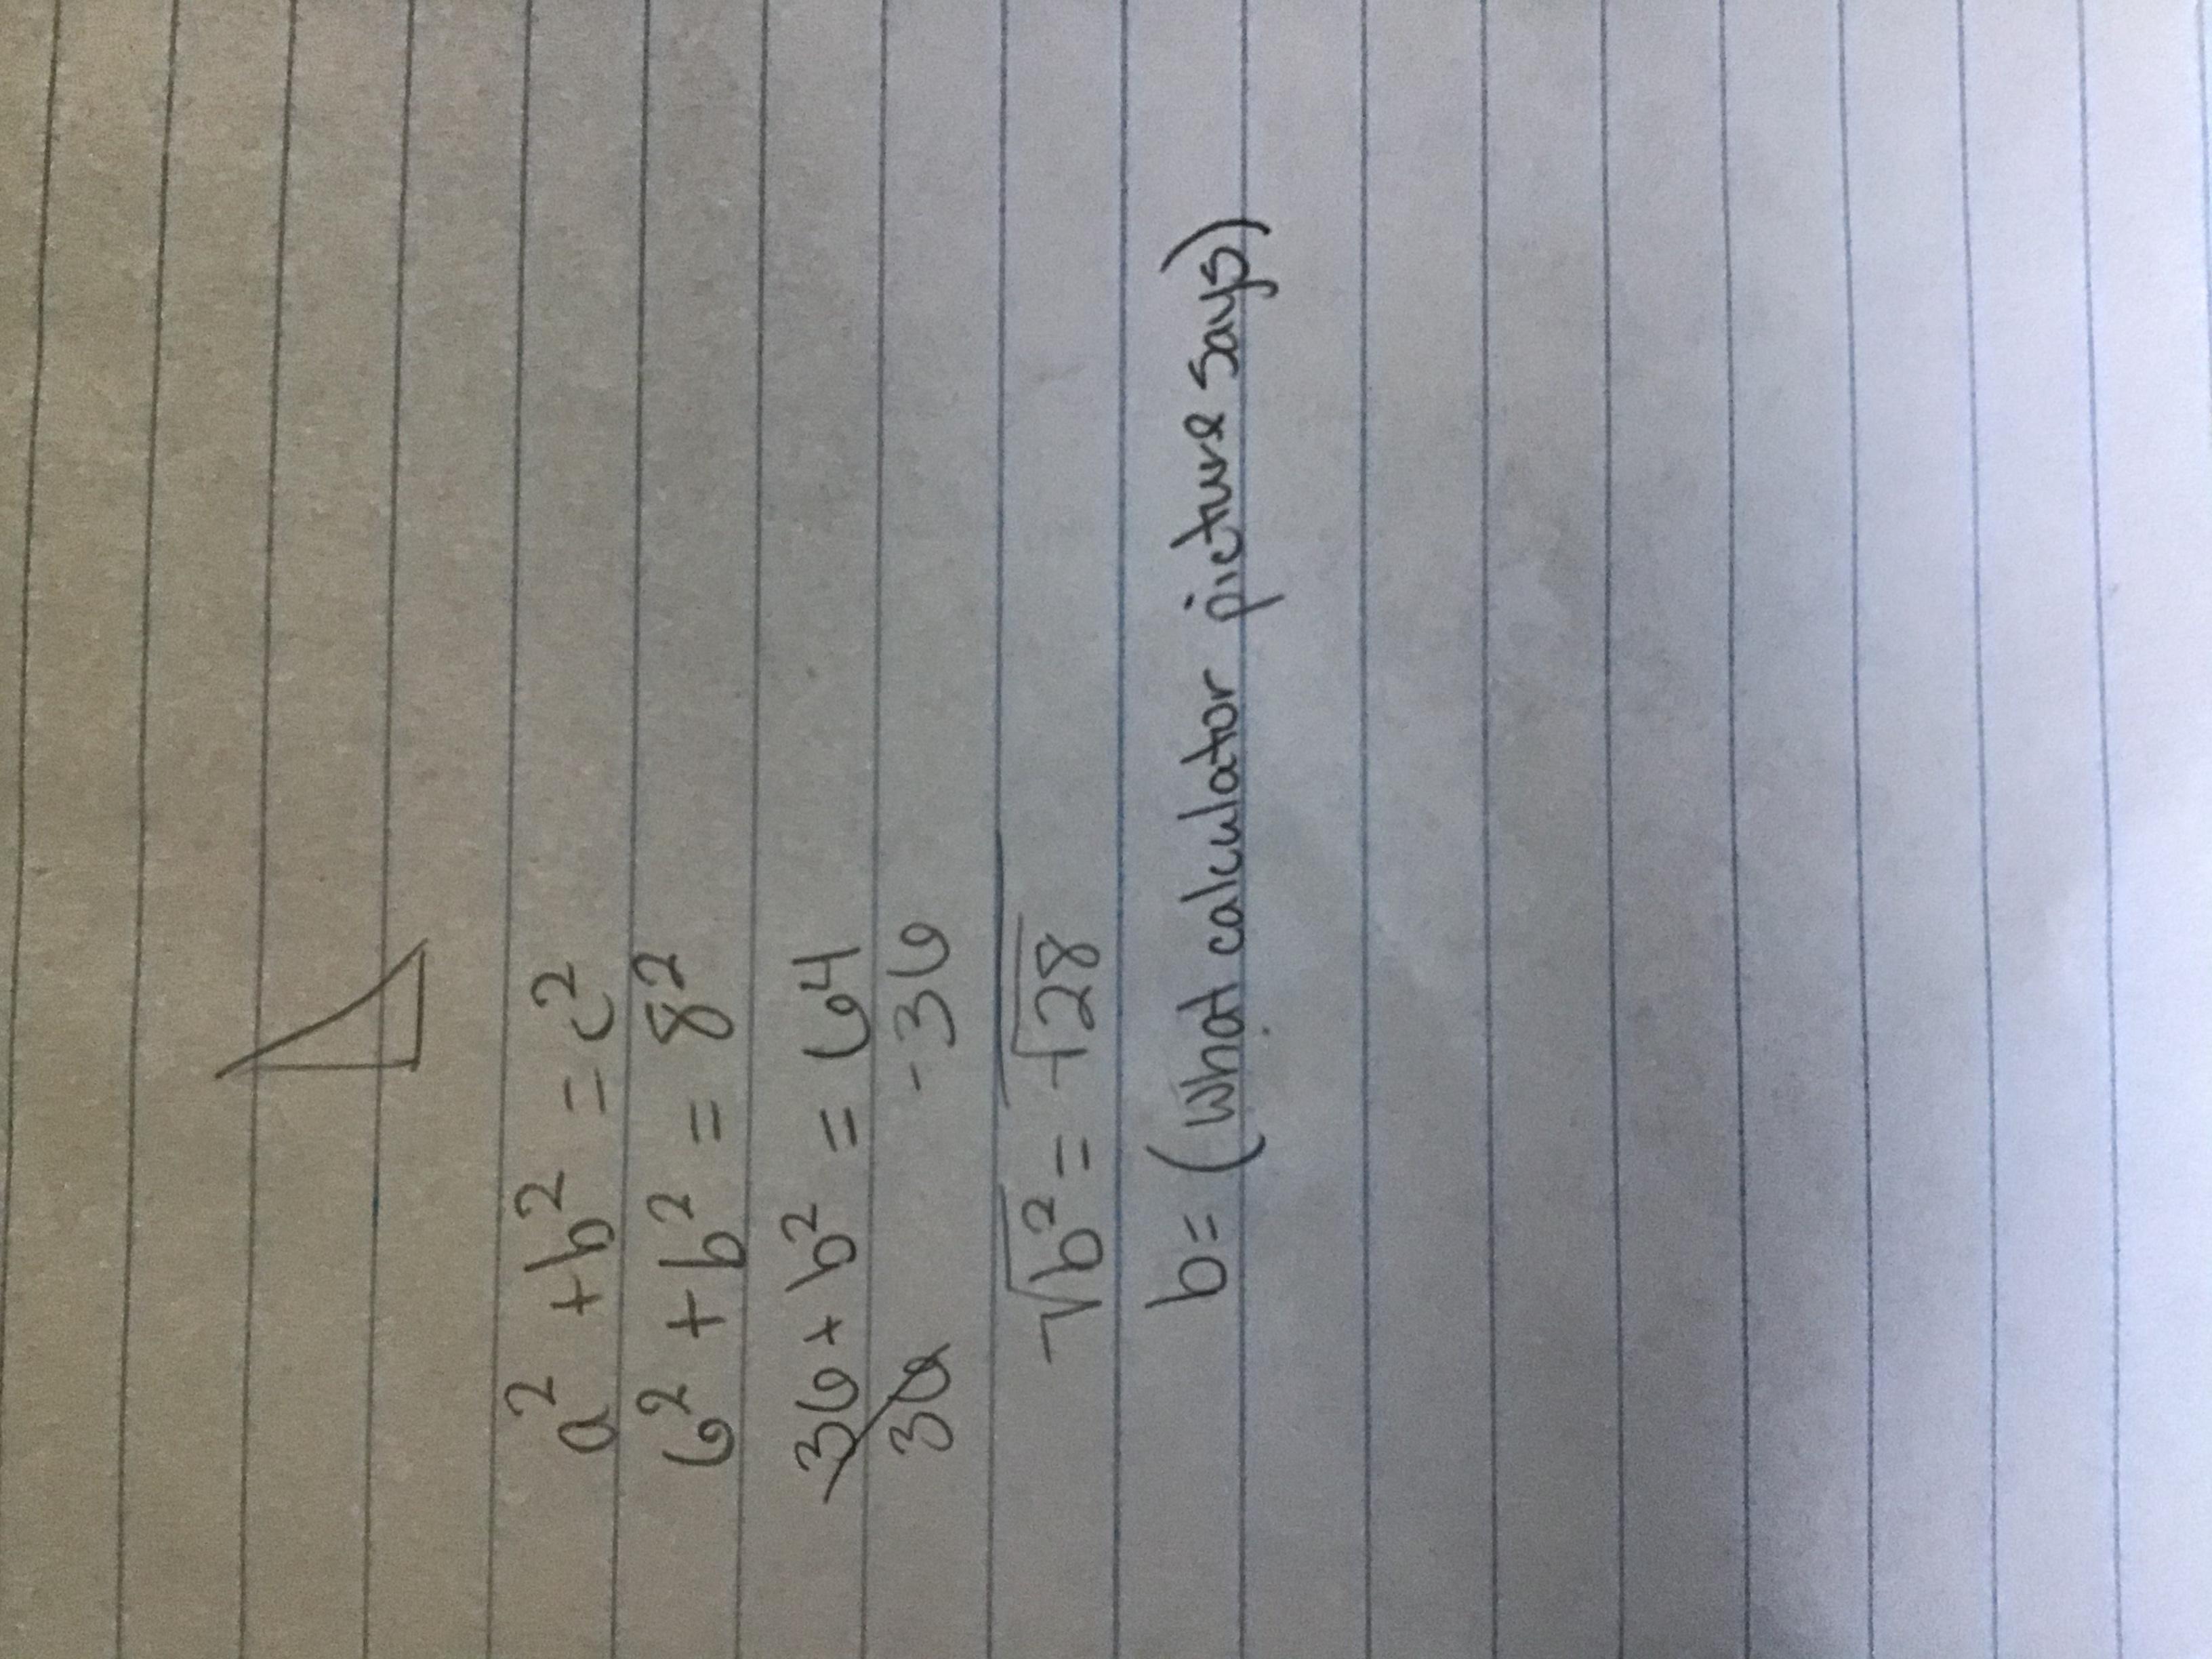 a² + b² = c²
6² + b² = 8²
36 + b² = 64
36 - 36
√b² = √28
b = (What calculator picture says)